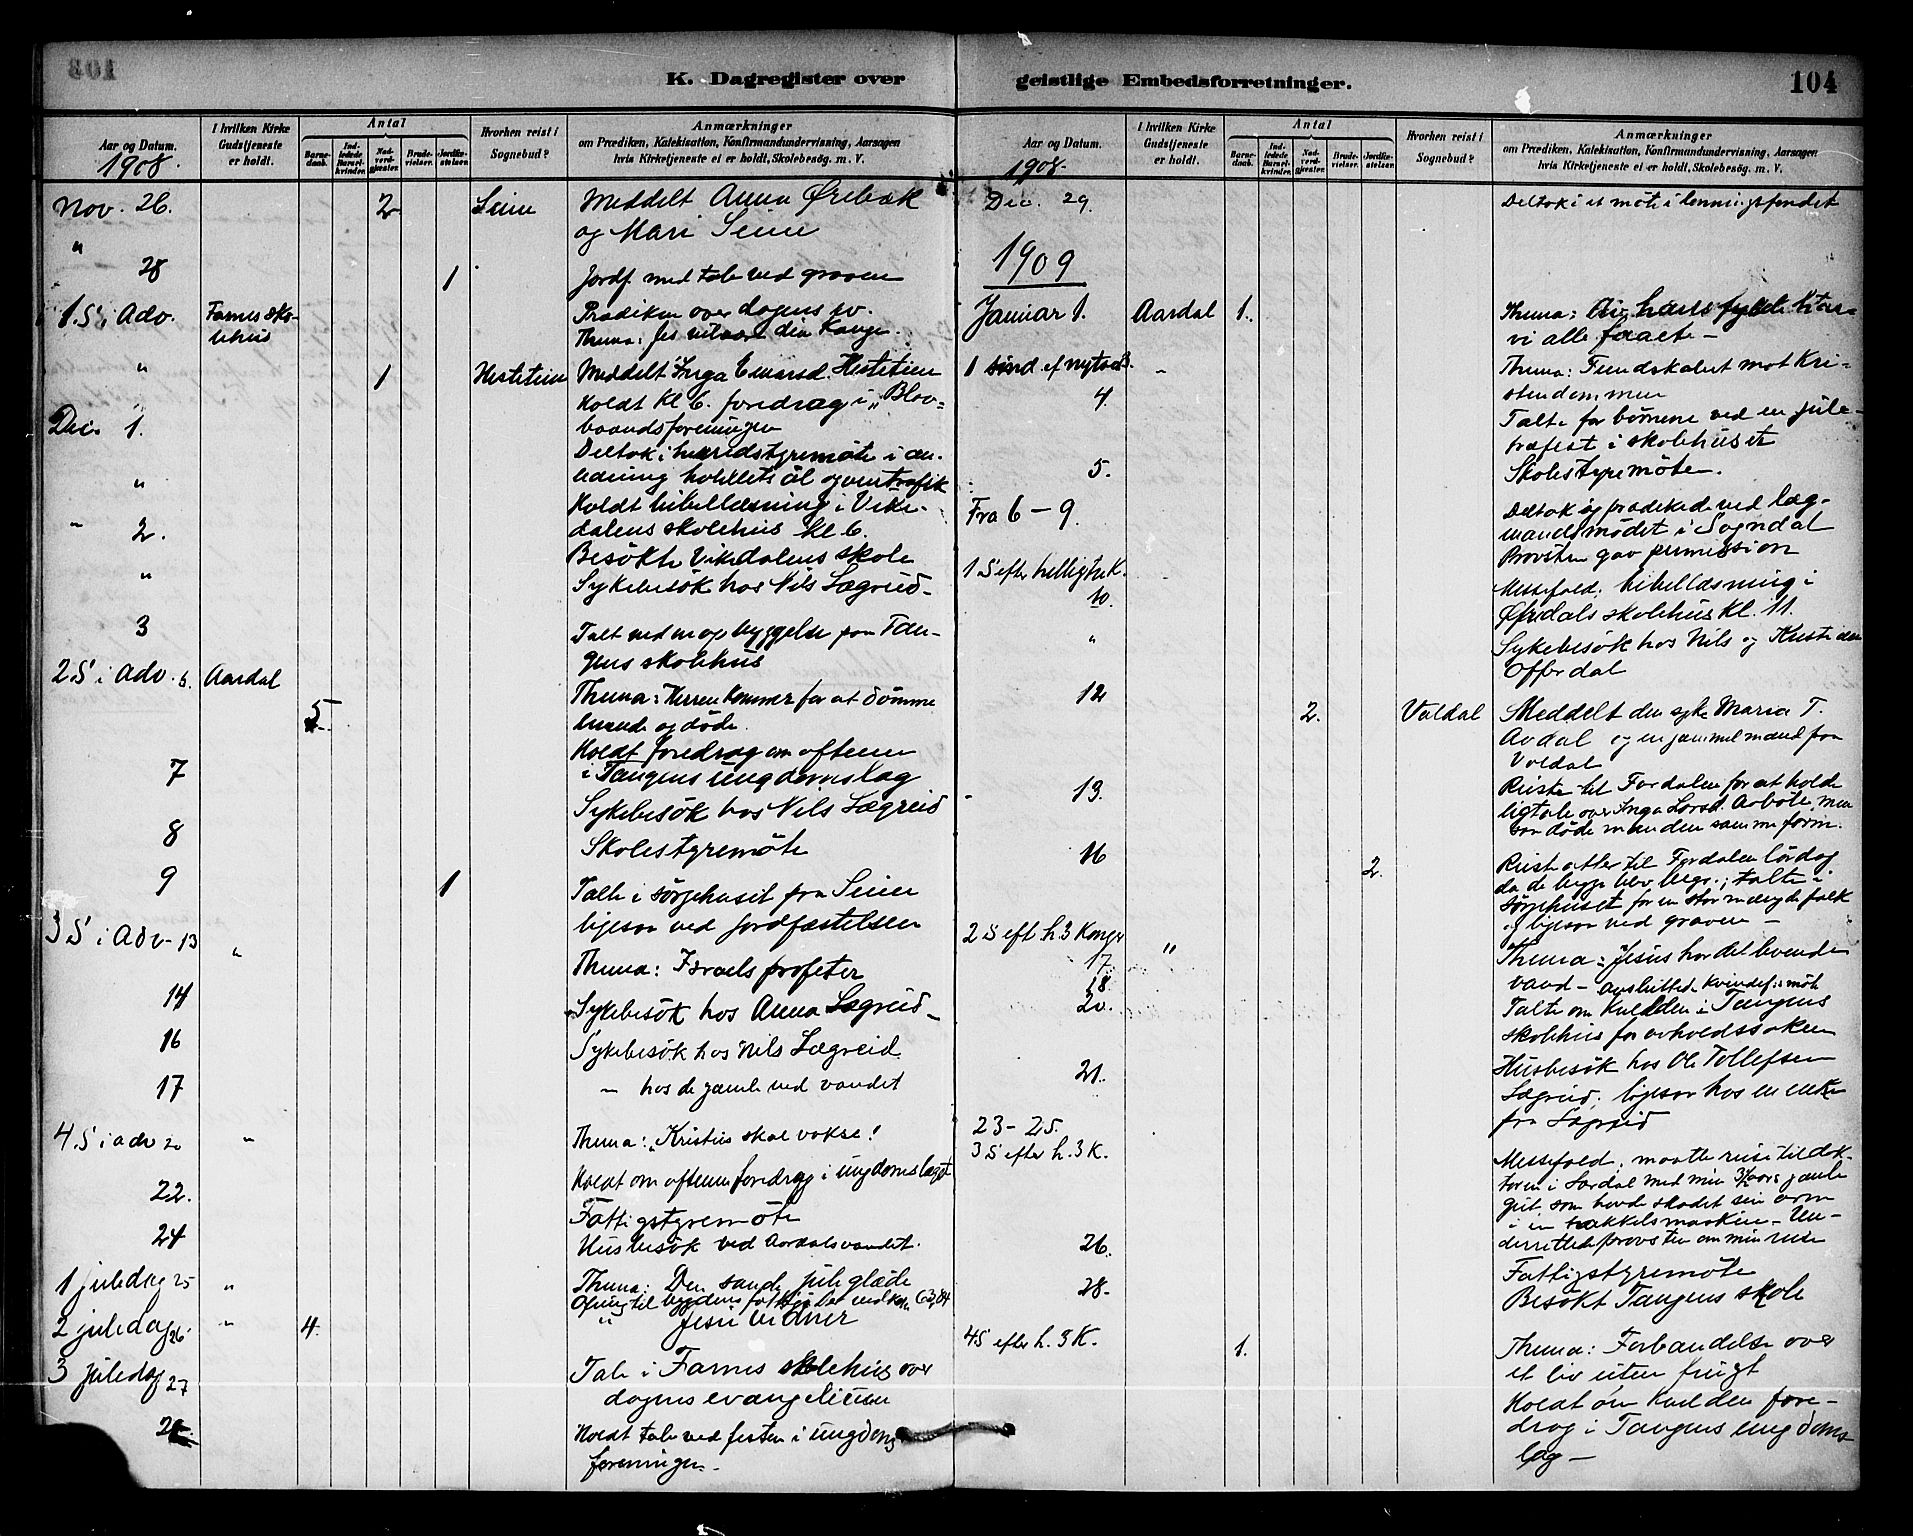 K. Dagregister over
Aar og Datum.
1908.
I hvilken Kirke Gudstjeneste er holdt.
Antal
Barnedaab.
Indledede Barselkvinder.
Nadverdgjester.
Brudevielser.
Jordfæstelser.
Hvorhen reist i Sognebud?
Anmærkninger
om Prædiken, Katekisation, Konfirmandundervisning, Aarsagen
hvis Kirketjeneste ei er holdt, Skolebesög. m. V.
Nov. 26. 2 Seim Meddelt Anna Ørebæk
og Mari Seim
" 28 1 Jordf. med tale ved graven
1. S. i Adv. Farnes sko-
lehus
Prædiken over dagens ev.
Thema: Jes velsært din Konge.
" 1 Hestetein Meddelt Inga Einarsd. Hestetein
Holdt kl 6. foredrag i „Blaa-
baandsforeningen
Dec. 1. Deltok i heredstyremöte i an-
ledning hotellets öl og vintrafik
" Holdt bibellæsning i Vike-
dalens skolehus kl 6.
" 2. Besökte Vikedalens skole
" Sykebesök hos Nils Lægreid
3 Talt ved en opbyggelse paa Tan-
gens skolehus
2 S. i Adv. 6. Aardal 5 Thema: Herren kommer for at dömme
levende og döde.
Holdt foredrag om aftenen
i Tangens ungdomslag
7 Sykebesök hos Nils Lægreid
8 Skolestyremöte
9 1 Talte i sörgehuset fra Seim
ligesom ved jordfæstelsen
3 S. i Adv. 13 " Thema: Israels profeter
14 Sykebesök hos Anna Lægreid
16 Sykebesök hos Nils Lægreid
17 " hos de gamle ved vandet
4. S. i adv 20 " Thema: „Kristus skal vokse!
Holdt om aftenen foredrag i ungdomslaget
22. Fattigstyremöte
24 Husbesök ved Aardalsvandet.
1 juledag 25 " Thema: Den sande juleglæde
2 juledag 26 " 4. " Jesu vidner
3 juledag 27 Tale i Farnes skolehus over
dagens evangelium
28 Holdt tale ved festen i ungdoms
foreningen
geistlige Embedsforretninger.
104
Aar og Datum.
1908.
I hvilken Kirke Gudstjeneste er holdt.
Antal
Barnedaab.
Indledede Barselkvinder.
Nadverdgjester.
Brudevielser.
Jordfæstelser.
Hvorhen reist i Sognebud?
Anmærkninger
om Prædiken, Katekisation, Konfirmandundervisning, Aarsagen
hvis Kirketjeneste ei er holdt, Skolebesög. m. V.
Dec. 29. Deltok i et möte i lönningsfondet
1909
Januar 1. Aardal 1. Thema: Av hans fylde har
vi alle faaet
1 sönd. ef nytaar 3. " Thema: Fiendskabet mot Kri-
stendommen
4. Talte for börnene ved en jule-
træfest i skolehuset
5. Skolestyremöte.
Fra 6 - 9. Deltok og prædikede ved læg-
mandsmödet i Sogndal
Provsten gav permission
1 S efter hellig tre K.
10. Messefald; bibellæsning i
Øvredals skolehus kl. 11.
" Sykebesök hos Nils og Kristi
Offerdal
12 2. Valdal Meddelt den syke Maria T.
Avdal og en gammel mand fra
Voldal
13. Reiste til Fardalen for at holde
ligtale over Inga Larsd. Arbole, men
som döde manden samme form.
16 2. Reist atter til Fardalen lördag
da de begge blev begr.; talte i
sörgehuset for en stor mængde folk
og ligesom ved graven
2 S eft h. 3 Konger
17. " Thema: Jesus har det levende
vand - avsluttede kvindef. möte
18
20. Talte om kvelden i Tangens
skolehus for avholdssaken
21. Husbesök hos Ole Tollefsen
Lægreid, ligesom hos en enke
fra Lægreid
23 - 25.
3 S efter h. 3 K. Messefald, maatte reise til dok-
toren i Lærdal med min 3½ aars gamle
gut, som havde skadet sin arm
i en hakkelsmaskin - Un-
derrettede provsten om min reise
26. Fattigstyremöte
28. Besökt Tangens skole
4 S efter h. 3 K. 1. Thema: Forbandelse over
et liv uten frugt
Holdt om kvelden fore-
drag i Tangens ungdoms
lag